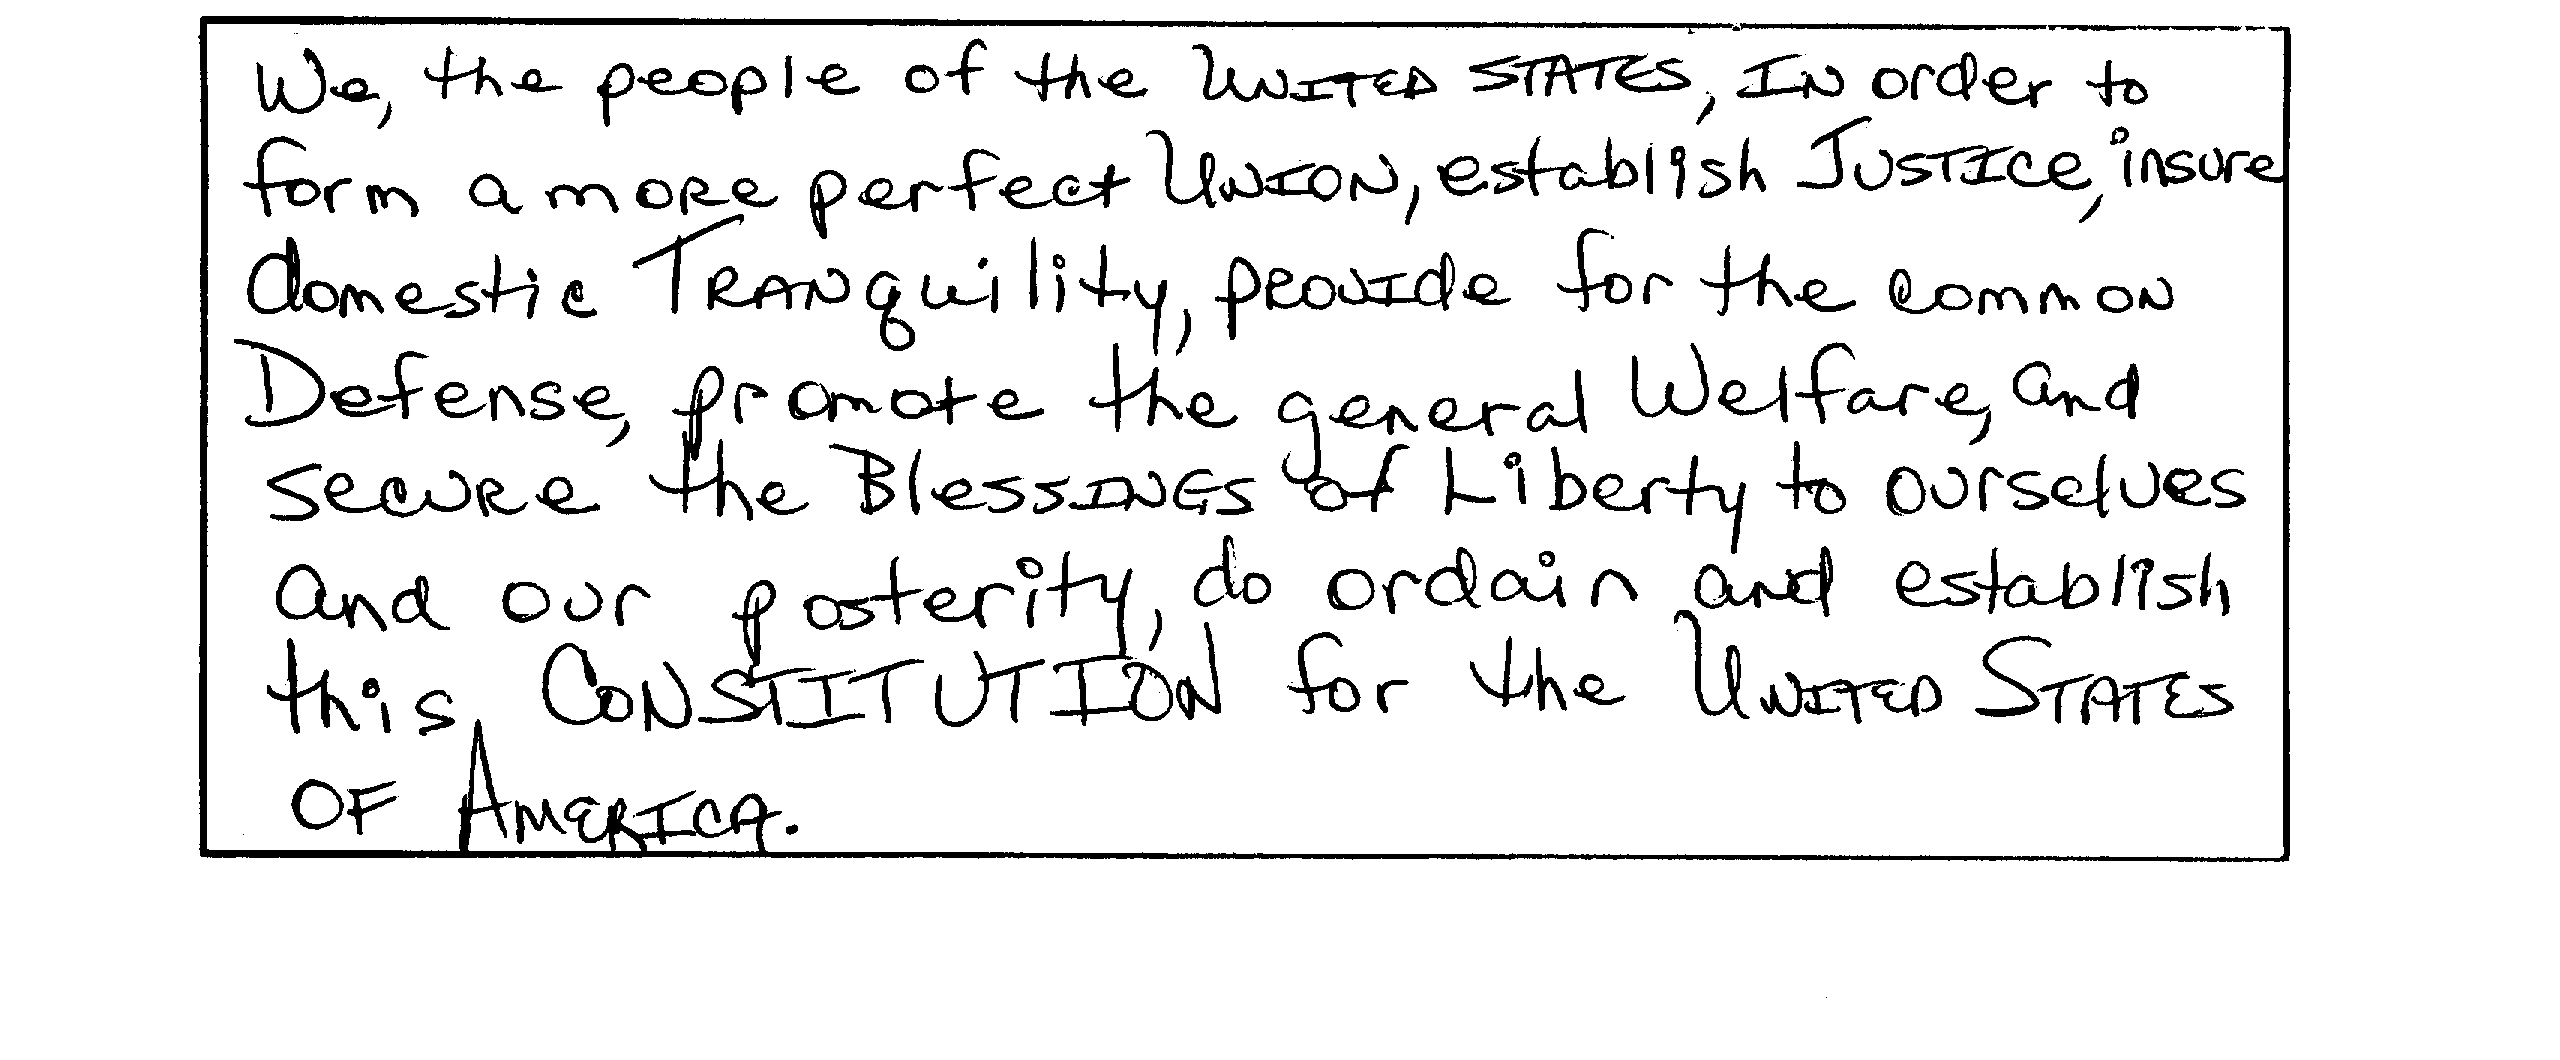 We, the people of the UNITED STATES, IN order to
form a moRe perfect UNION, establish JUSTICe, insure
domestic TRANquility, pROVIde for the common
Defense, promote the general Welfare, and
secuRe the BlessINGS of Liberty to ourselves
and our posterity, do ordain and establish
this CONSTITUTION for the UNITED STATES
OF AMERICA.